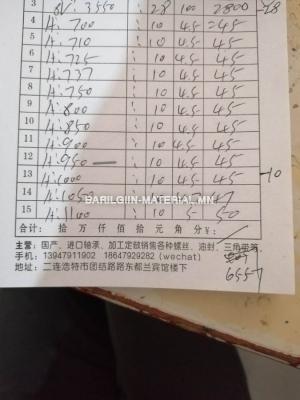 3 3550 28 100 2800 -28
4 A: 700 10 4.5 =45
5 A: 710 10 4.5 45
6 A: 725 10 4.5 45
7 A: 737 10 4.5 45
8 A: 750 10 4.5 45
9 A: 800 10 4.5 45
10 A: 850 10 4.5 45
11 A: 900 10 4.5 45
12 A: 950 — 10 4.5 45
13 A: 1000 10 4.5 45 -10
14 A: 1050 47
BARILGIIN-MATERIAL.MN
15 A: 1100 10 5 50
合计： 拾 万 仟 佰 拾 元 角 分 ￥：
主营：国产、进口轴承、加工定做销售各种螺丝、油封、三角带等。
手机：13947911902 18647929282 (wechat)
地址：二连浩特市团结路路东都兰宾馆楼下
6557